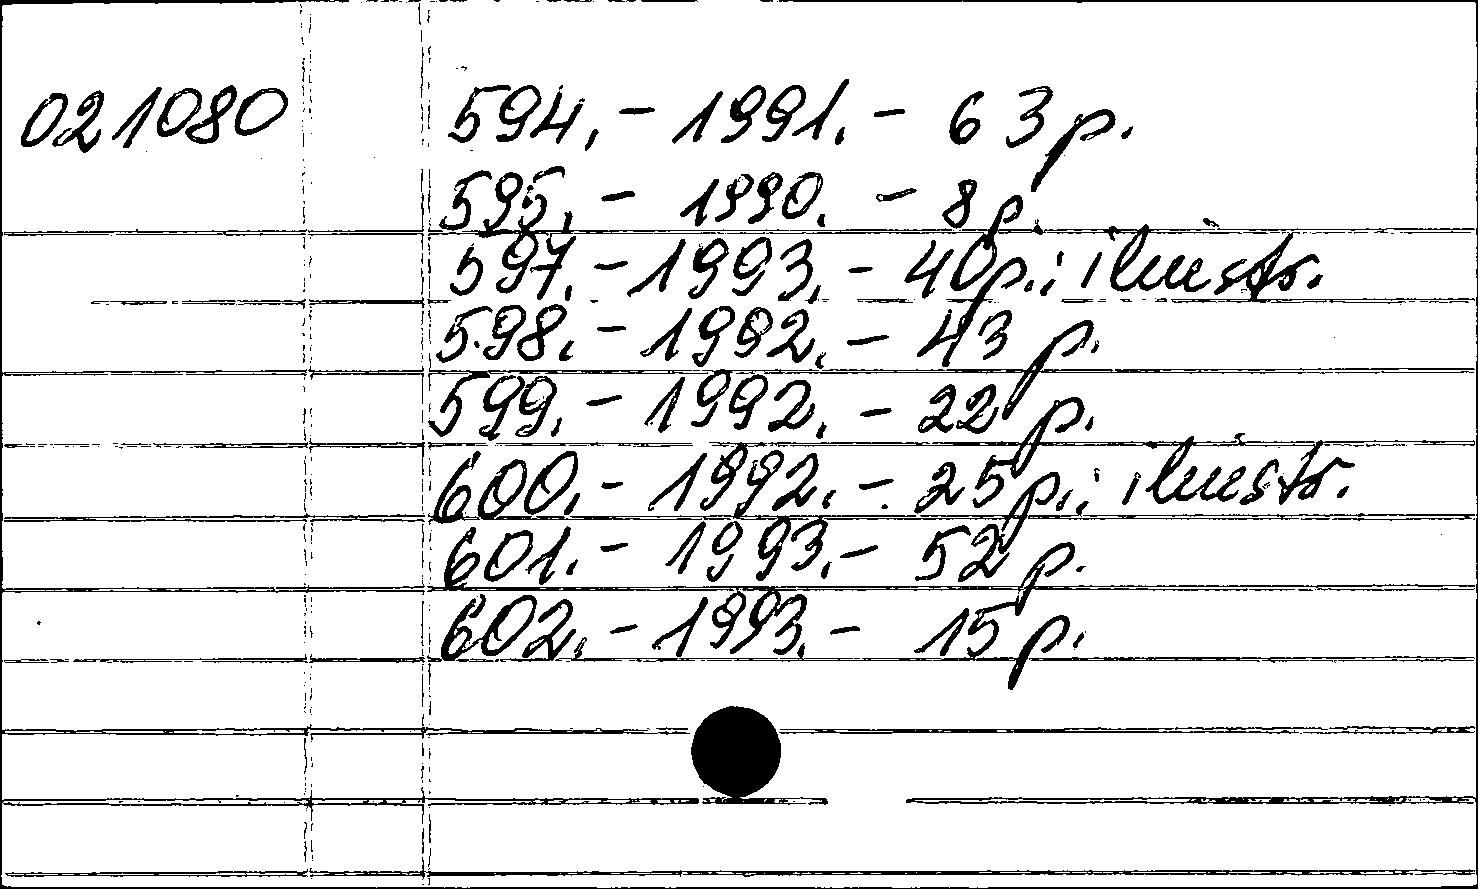 021080 594.- 1991.- 63 p.
595.- 1990. - 8 p.
597.- 1993.- 40 p.: ilustr.
598.- 1992.- 43 p.
599.- 1992.- 22 p.
600.- 1992.- 25 p.: ilustr.
601.- 1993.- 52 p.
602.- 1993.- 15 p.